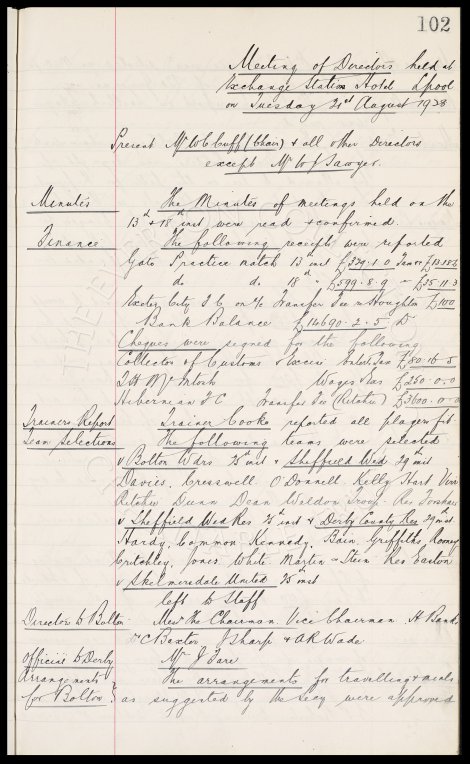 102
Meeting of Directors held at
Exchange Station Hotel L'pool
on Tuesday 21st August 1928
Present Mr W C Cuff (Chair) & all other Directors
except Mr W J Sawyer.
Minutes The Minutes of meetings held on the
13th & 18th inst were read & confirmed.
Finance The following receipts were reported
Gate Practice match 13th inst £329.1.0
do do 18th " £599.8.9 - £35.11.3
Exeter City F C on a/c Transfer Fee Houghton £100
Bank Balance £14690.2.5 D
Cheques were signed for the following
Collector of Customs & Excise Ents Tax £80.16.5
T H McIntosh Wages £250.0.0
Hibernian FC Transfer Fee (Ritchie) £3600.0.0
Trainers Report Trainer Cooke reported all players fit
Team Selections The following teams were selected
v Bolton Wdrs 25th inst & Sheffield Wed 29th inst
Davies. Cresswell O'Donnell. Kelly Hart Virr
Ritchie Dunn Dean Weldon Troup. Res Forshaw
v Sheffield Wed Res 25th inst & Derby County Res 29th inst
Hardy, Common Kennedy. Bain Griffiths Rooney
Critchley. Jones. White. Martin & Stein Res Easton
v Skelmersdale United 25th inst
left to Staff
Director to Bolton Mess The Chairman. Vice Chairman. H Banks
W C Baxter J Sharp & A R Wade
Official to Derby Mr J Fare
Arrangements The arrangements for travelling & meals
for Bolton as suggested by the Secy were approved